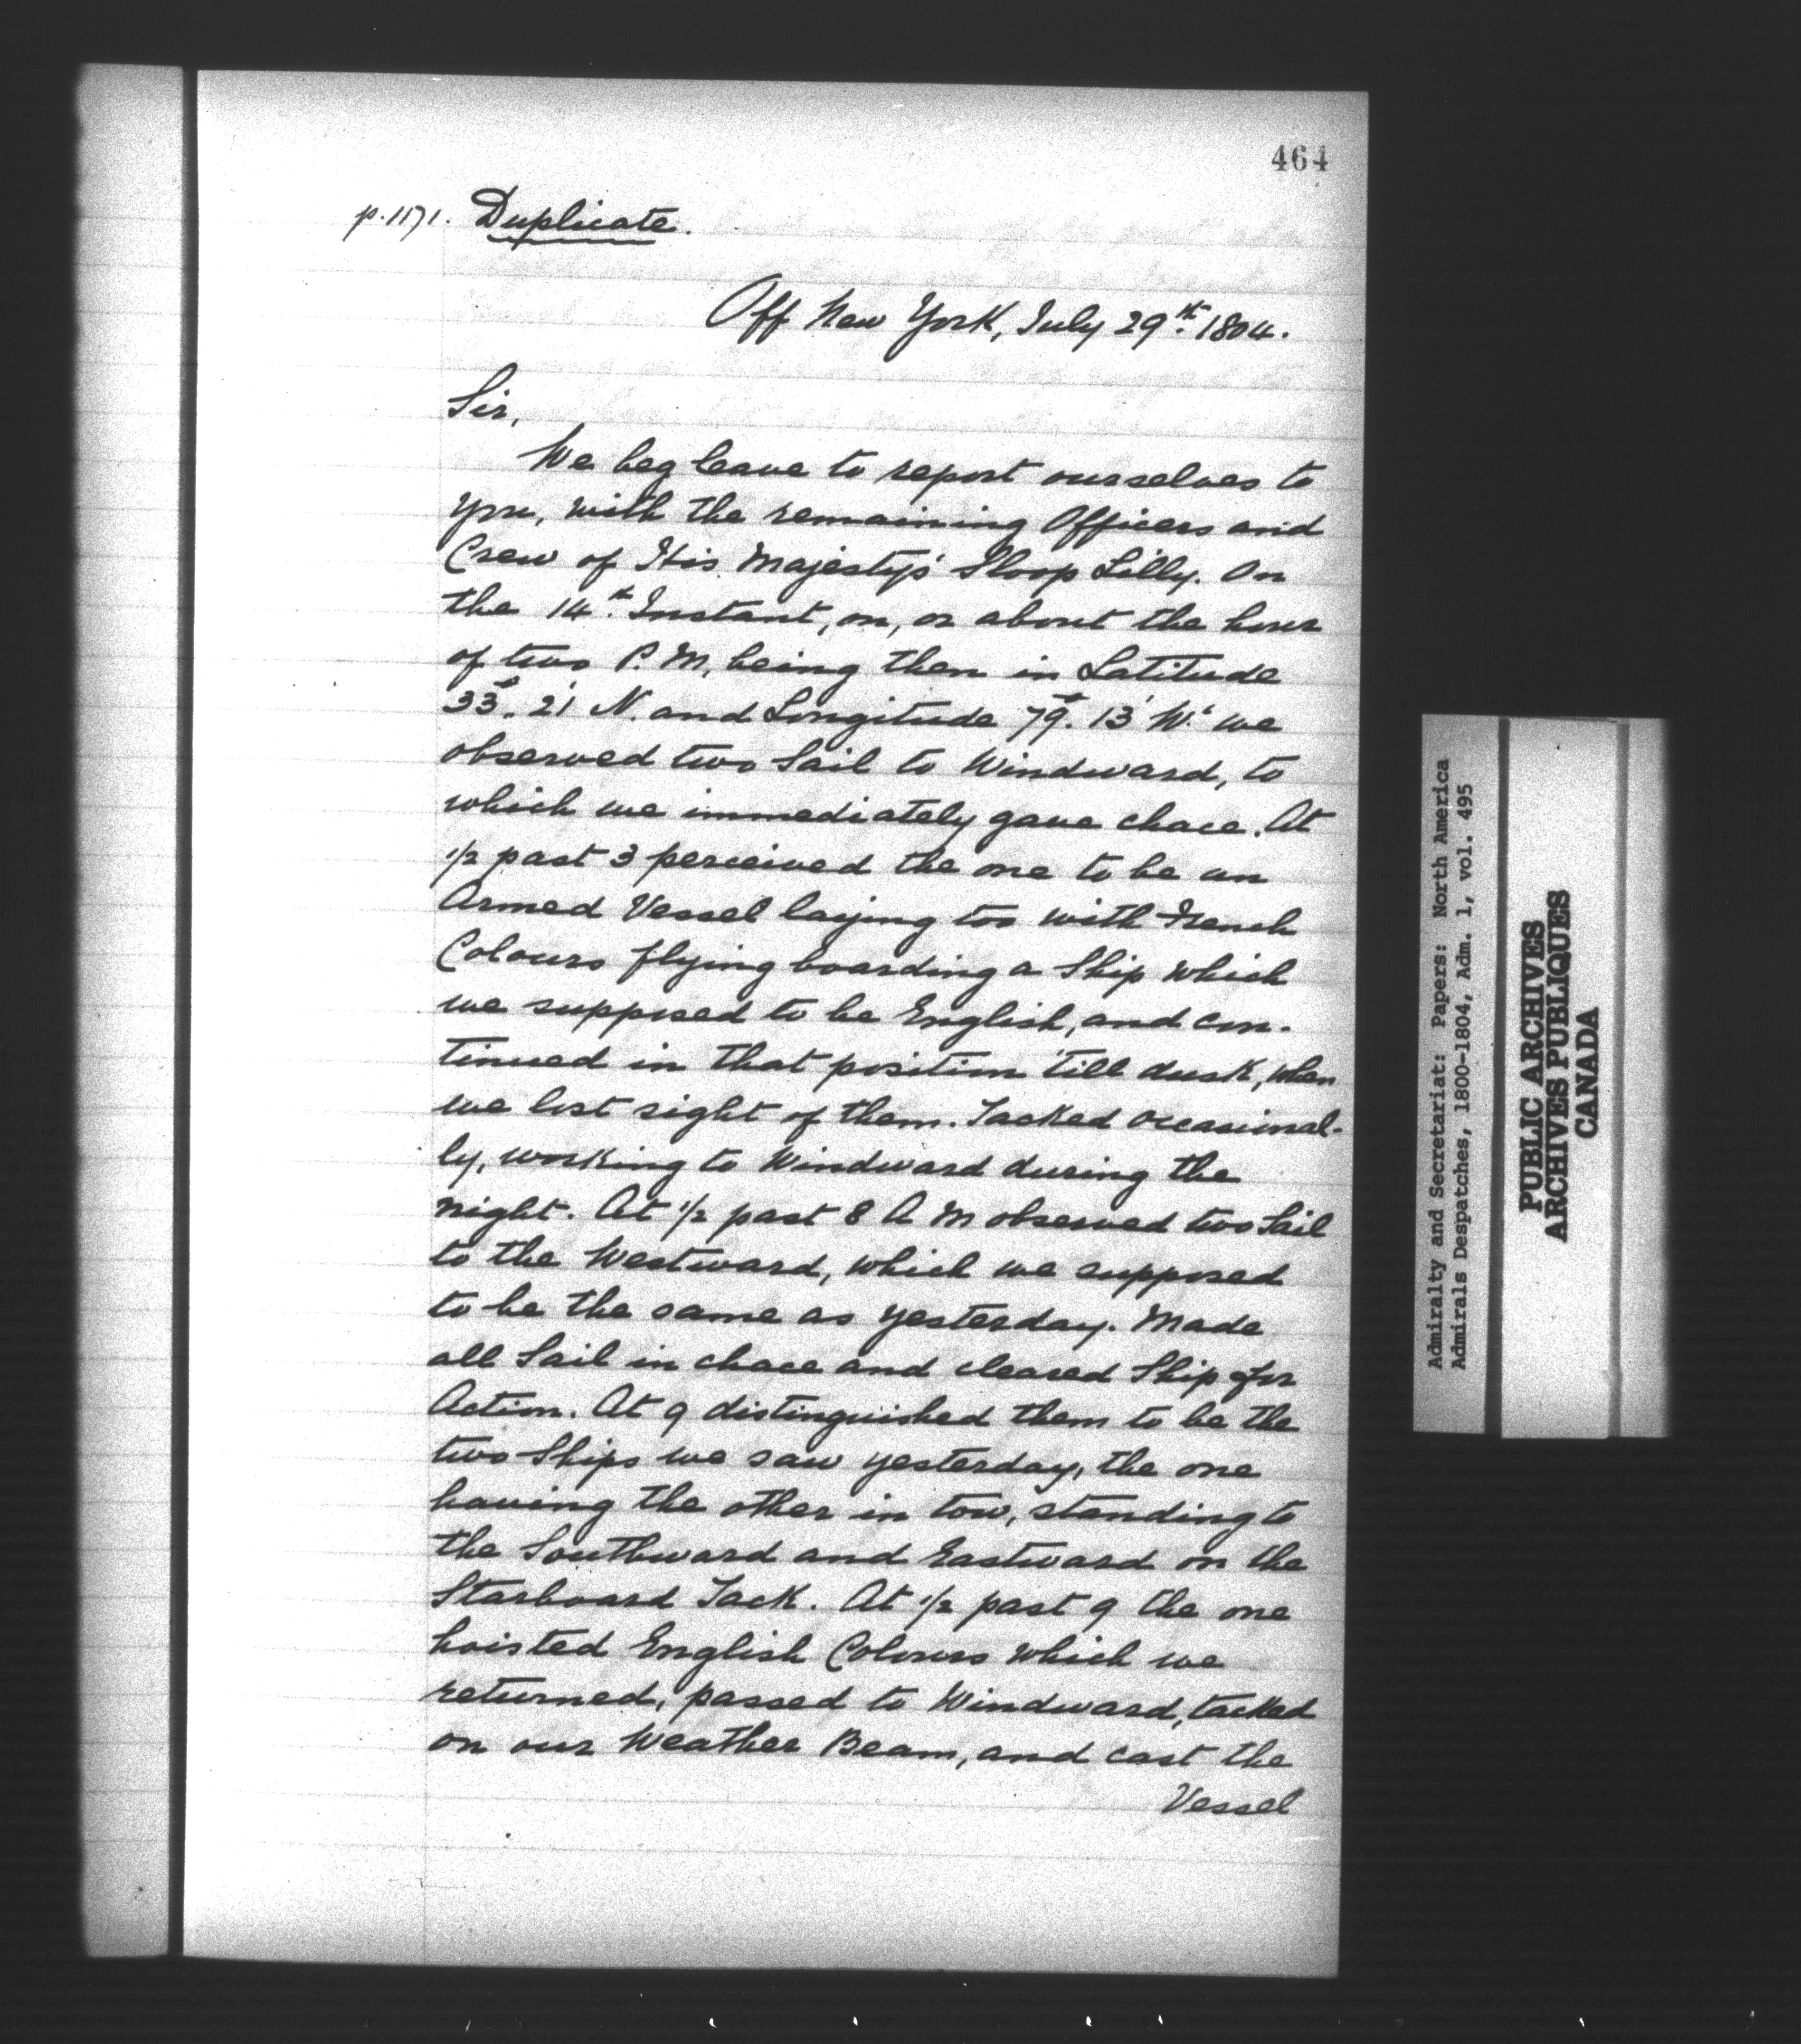 464
p. 1171. Duplicate.
Off New York, July 29th. 1804.
Sir,
We beg leave to report ourselves to
you, with the remaining Officers and
Crew of His Majesty's Sloop Lilly. On
the 14th. Instant, on, or about the hour
of two P. M, being then in Latitude
33°. 21' N. and Longitude 79°. 13' W. we
observed two Sail to Windward, to
which we immediately gave chace. At
1/2 past 3 perceived the one to be an
Armed Vessel laying too with French
Colours flying boarding a Ship which
we supposed to be English, and con-
tinued in that position 'till dusk, when
we lost sight of them. Tacked occasional-
ly, working to Windward during the
night. At 1/2 past 8 A M observed two Sail
to the Westward, which we supposed
to be the same as yesterday. Made
all Sail in chace and cleared Ship for
Action. At 9 distinguished them to be the
two Ships we saw yesterday, the one
having the other in tow, standing to
the Southward and Eastward on the
Starboard Tack. At 1/2 past 9 the one
hoisted English Colours which we
returned, passed to Windward, tacked
on our Weather Beam, and cast the
Vessel
Admiralty and Secretariat: Papers: North America
Admirals Despatches, 1800-1804, Adm. 1, vol. 495
PUBLIC ARCHIVES
ARCHIVES PUBLIQUES
CANADA